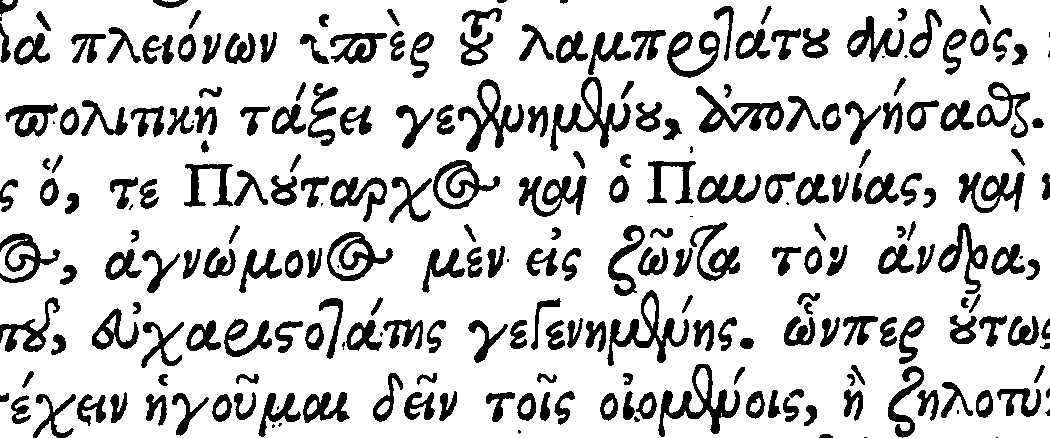 διὰ πλειόνων ὑπὲρ τοῦ λαμπροτάτου ἀνδρὸς,
πολιτικῇ τάξει γεγενημένου, ἀπολογήσασθαι.
ὅ, τε Πλούταρχος καὶ ὁ Παυσανίας, καὶ
ἀγνώμονος μὲν εἰς ζῶντα τὸν ἄνδρα,
εὐχαριστοτάτης γεγενημένης. ὧνπερ οὕτως
ἡγοῦμαι δεῖν τοῖς οἰομένοις, ἢ